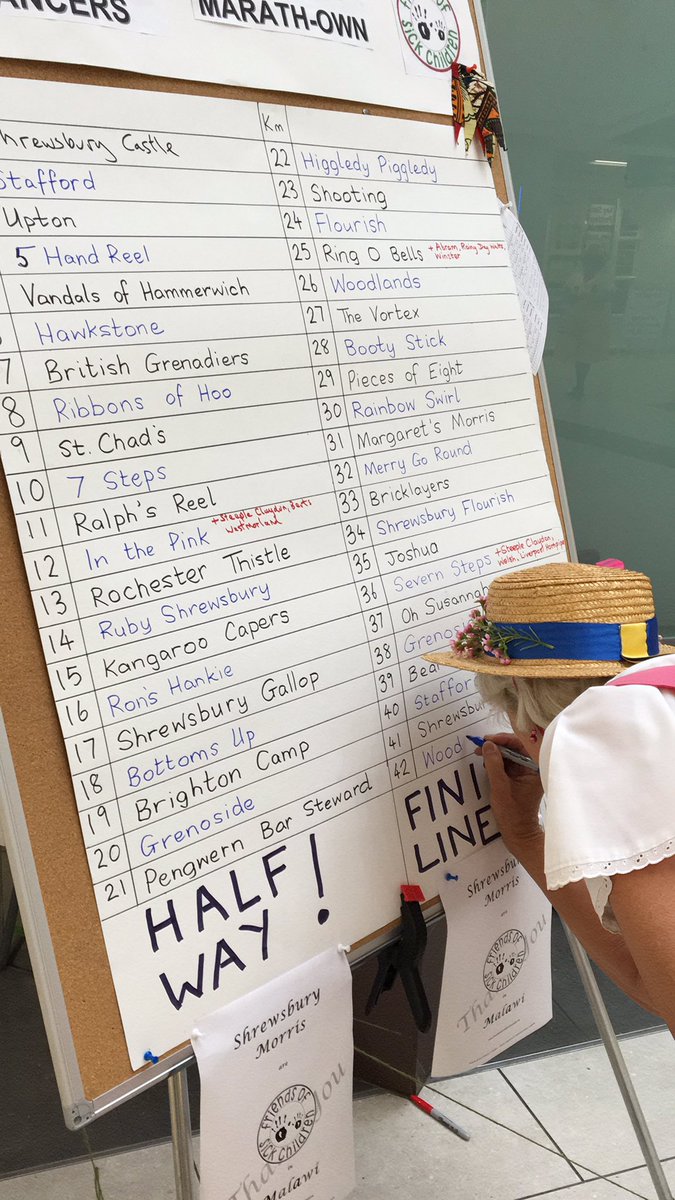 ANCERS
MARATH-OWN
FRIENDS OF sick children
hrewsbury Castle
Stafford
Upton
5 Hand Reel
Vandals of Hammerwich
Hawkstone
7 British Grenadiers
8 Ribbons of Hoo
9 St. Chad's
10 7 Steps
11 Ralph's Reel
12 In the Pink + Steeple Claydon,
Westmorland
13 Rochester Thistle
14 Ruby Shrewsbury
15 Kangaroo Capers
16 Ron's Hankie
17 Shrewsbury Gallop
18 Bottoms Up
19 Brighton Camp
20 Grenoside
21 Pengwern Bar Steward
HALF
WAY!
Km
22 Higgledy Piggledy
23 Shooting
24 Flourish
25 Ring O Bells + Abram, Rainy Day Waltz,
Winster
26 Woodlands
27 The Vortex
28 Booty Stick
29 Pieces of Eight
30 Rainbow Swirl
31 Margaret's Morris
32 Merry Go Round
33 Bricklayers
34 Shrewsbury Flourish
35 Joshua
36 Severn Steps + Steeple Claydon,
Welsh, Liverpool Hornpipe
37 Oh Susannah
38 Grenos
39 Bea
40 Staffor
41 Shrewsbu
42 Wood
FINI
LINE
Shrewsbury
Morris
are
FRIENDS OF
SICK CHILDREN
in
Malawi
Thank you
Shrewsbury
Morris
are
FRIENDS OF
SICK CHILDREN
Malawi
Tha you